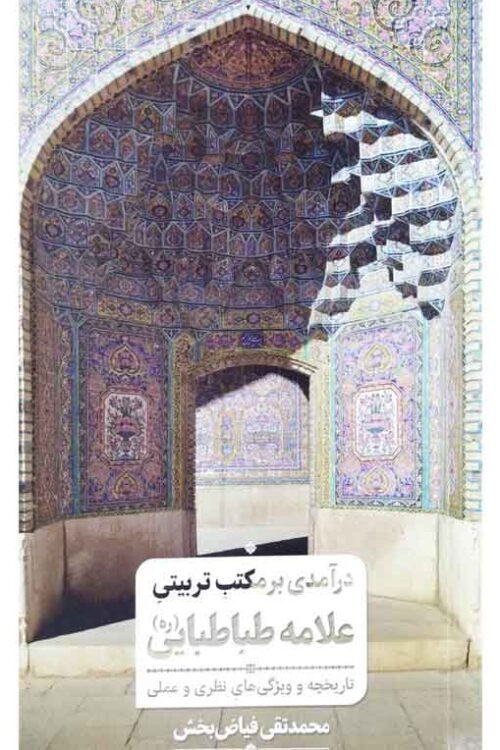 درآمدی بر مکتب تربیتیِ
علامه طباطبایی(ره)
تاریخچه و ویژگی‌های نظری و عملی
محمدتقی فیاض‌بخش